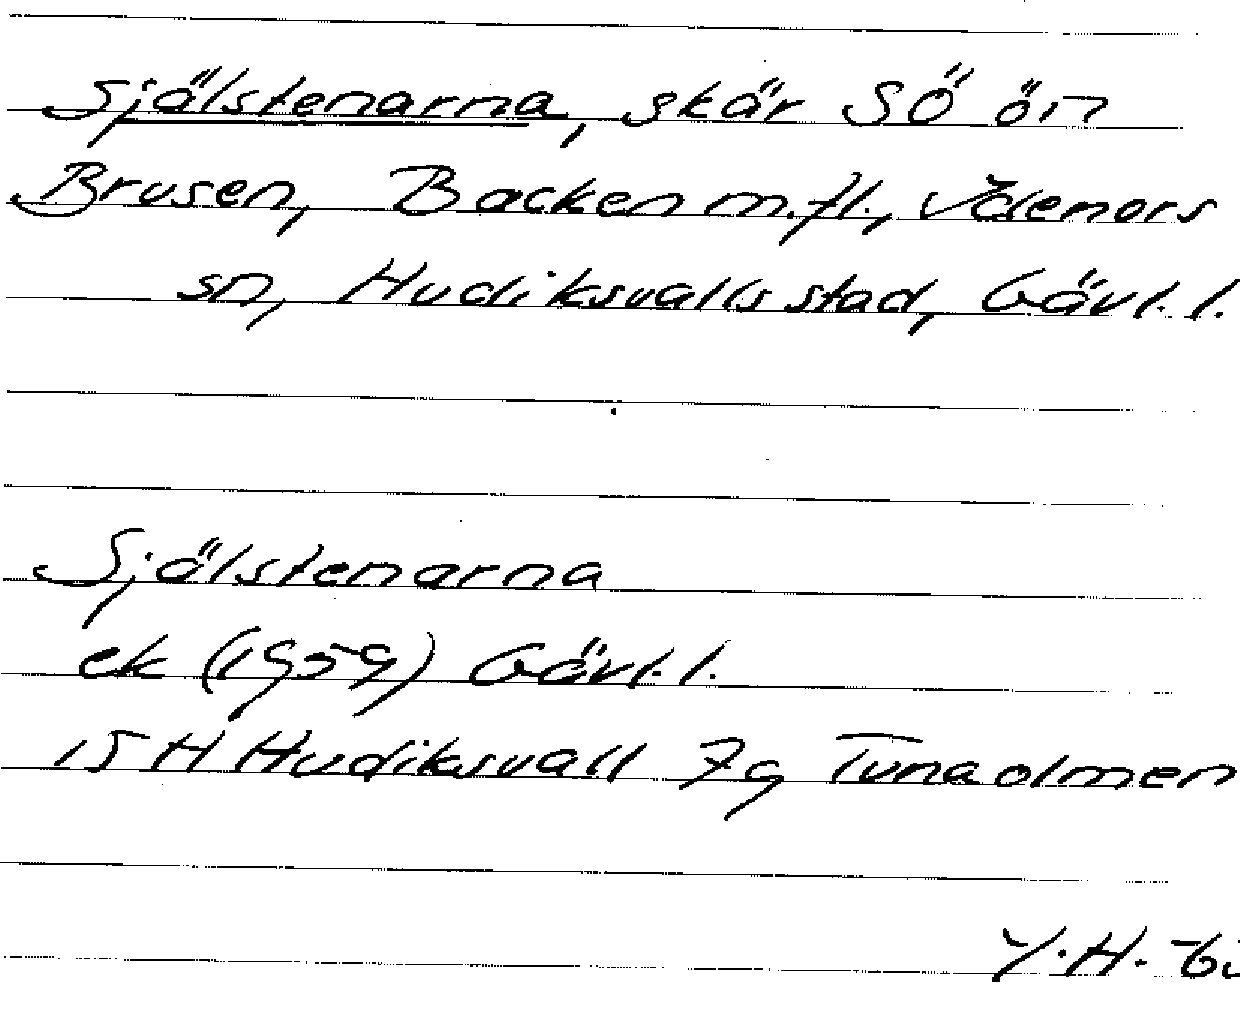 Själstenarna, skär SÖ ön
Brusen, Backen m.fl., Idenors
sn, Hudiksvalls stad, Gävl. l.
Själstenarna
ek (1959) Gävl. l.
15 H Hudiksvall 7g Tunaolmen
Y.H.